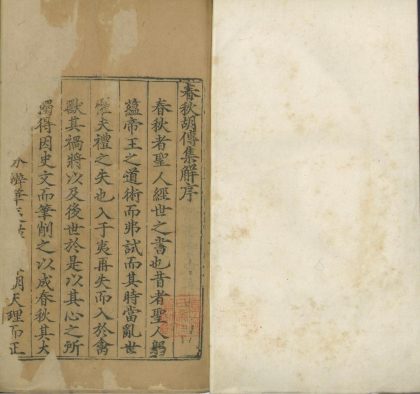 春秋胡傳集解序
春秋者聖人經世之書也昔者聖人躬
蘊帝王之道術而弗試而其時當亂世
懼夫禮之失也入于夷再失而入於禽
獸其禍將以及後世於是以其心之所
獨得因史文而筆削之以成春秋其大
明天理而正